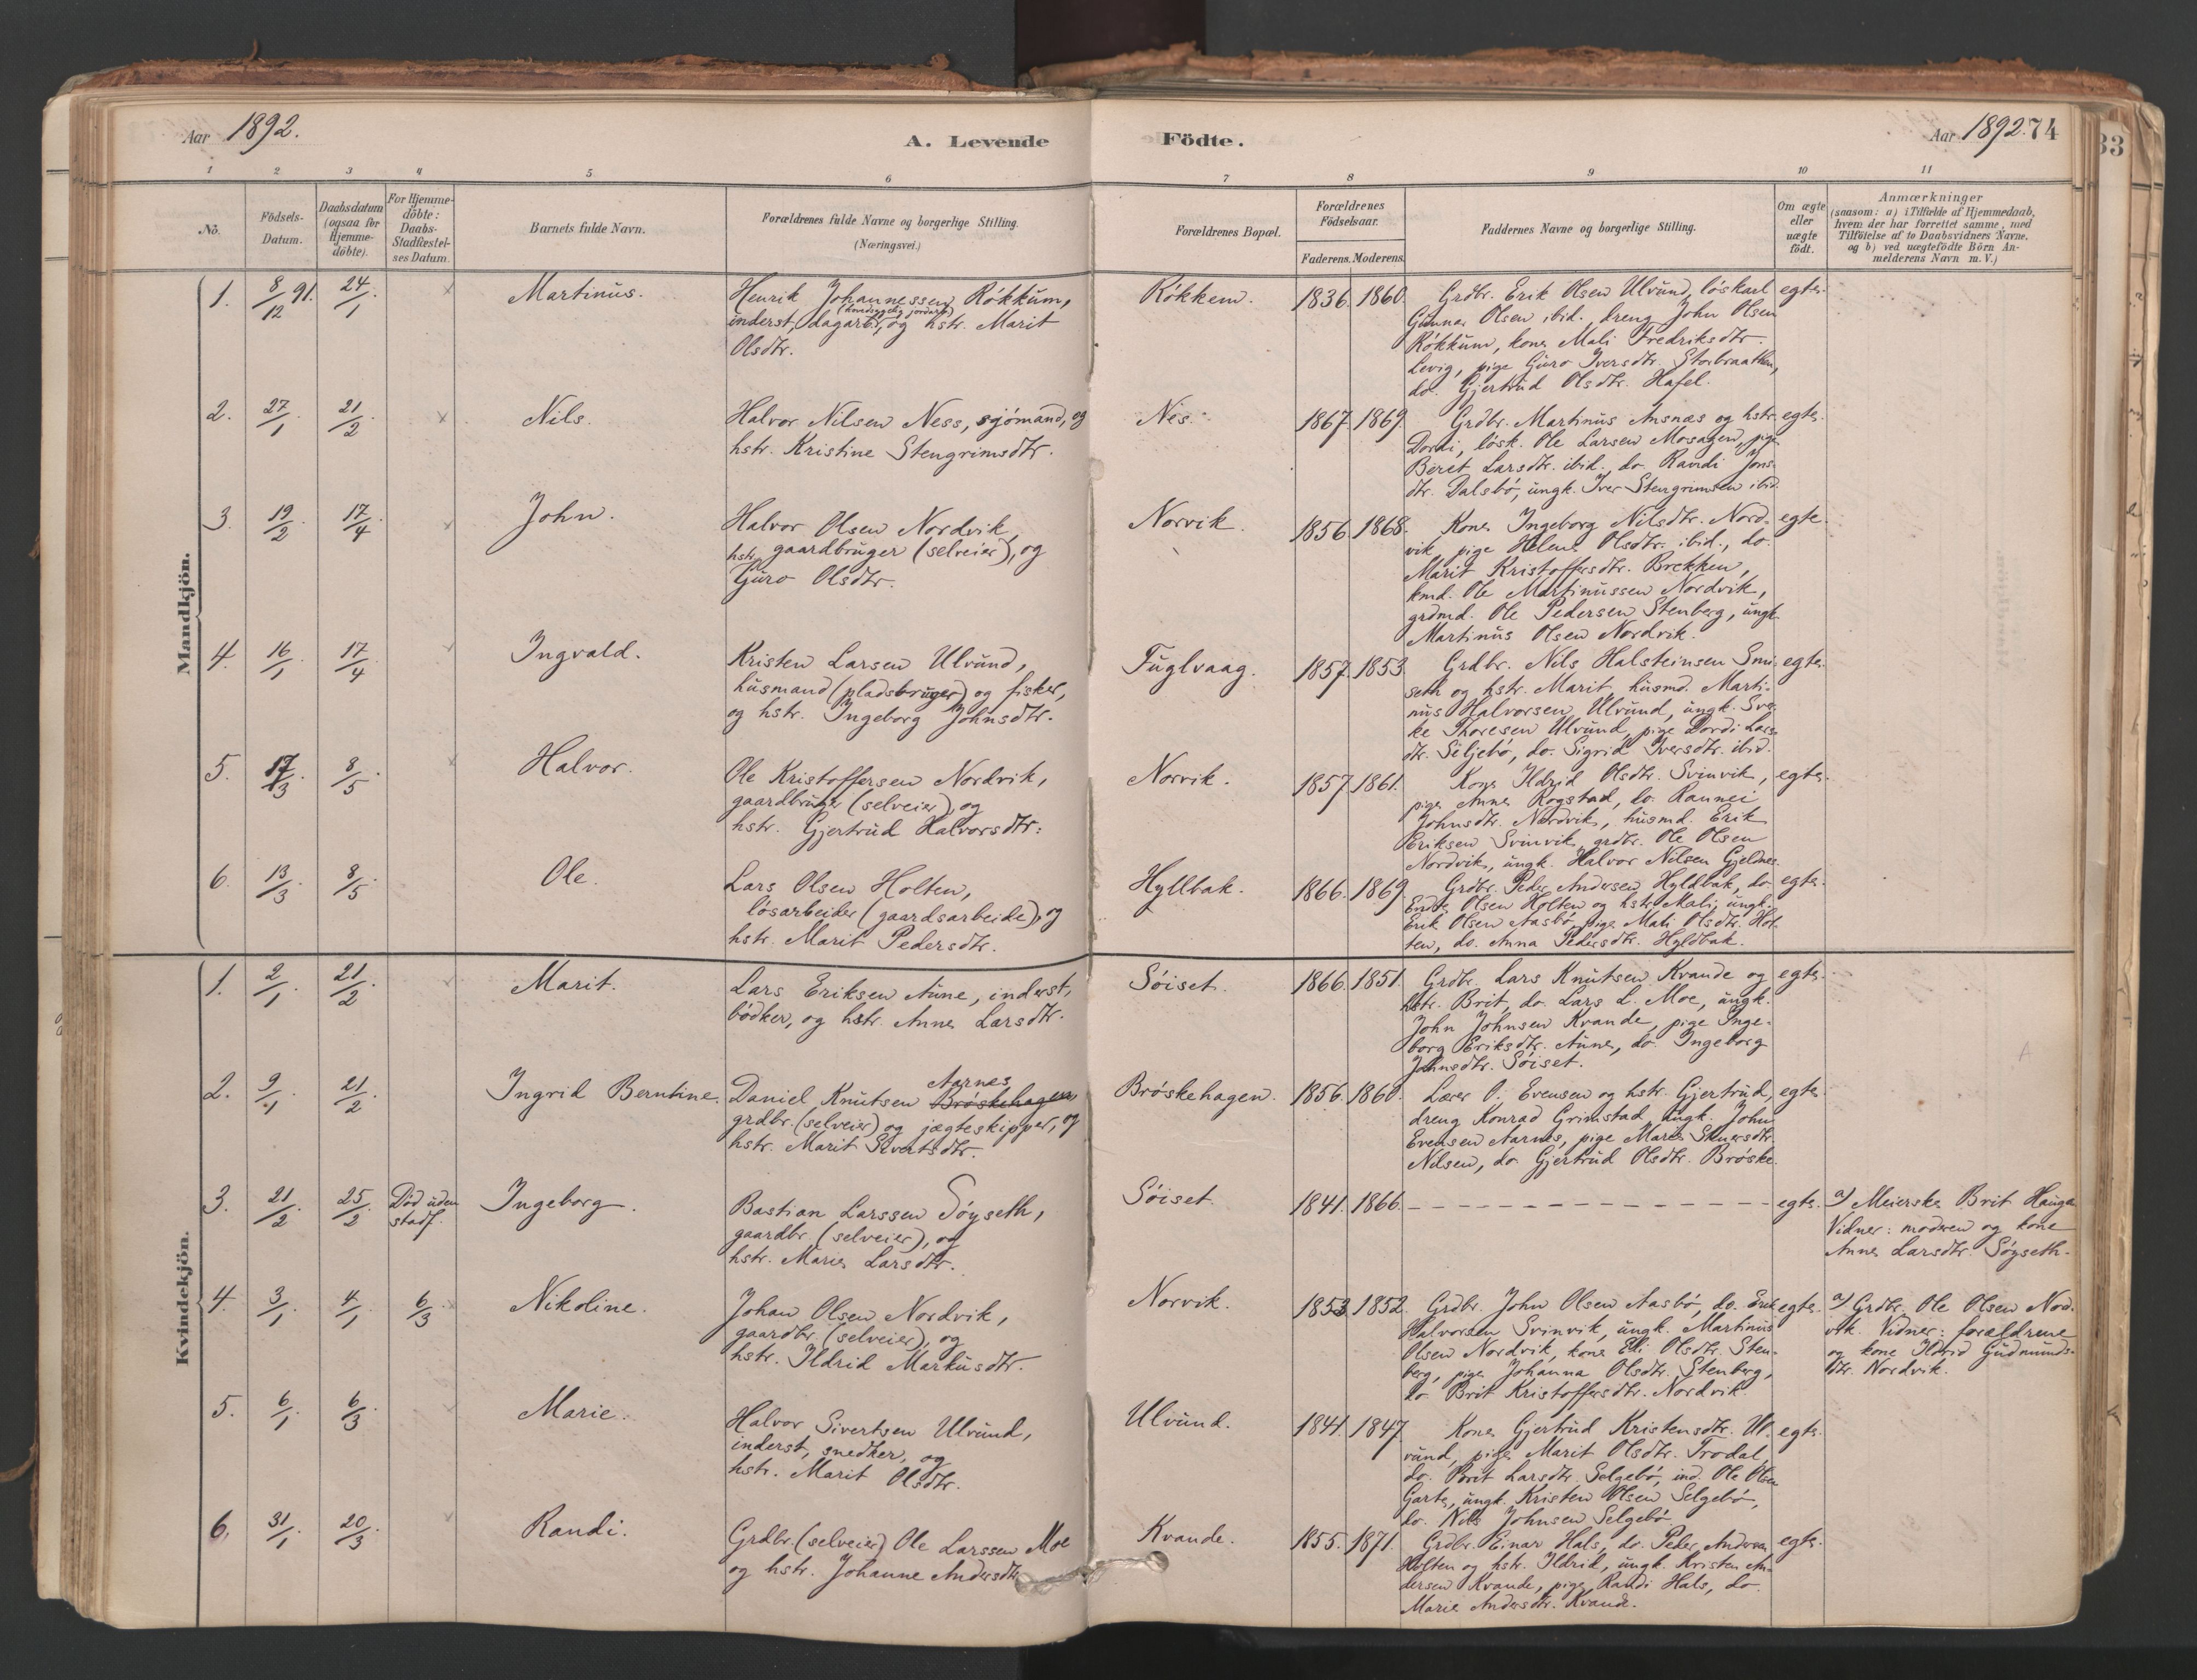 Aar 1892.
A. Levende Födte.
Aar 1892. 74
33
1 2 3 4 5 6 7 8 9 10 11
No.
Födsels-Datum.
Daabsdatum (ogsaa for Hjemme-döbte).
For Hjemme-döbte: Daabs-Stadfæstel-ses Datum.
Barnets fulde Navn.
Forældrenes fulde Navne og borgerlige Stilling. (Næringsvei.)
Forældrenes Bopæl.
Forældrenes Födselsaar.
Faderens. Moderens.
Faddernes Navne og borgerlige Stilling.
Om ægte eller uægte födt.
Anmærkninger
(saasom: a) i Tilfælde af Hjemmedaab,
hvem der har forrettet samme, med
Tilföielse af to Daabsvidners Navne,
og b) ved uægtefödte Börn An-
melderens Navn m. V.)
Mandkjön.
1. 8/12 91. 24/1. Martinus.
Henrik Johannessen Rökkum,
inderst, dagarb., og hstr. Marit
Olsdtr.
Rökkem. 1836. 1860.
Grdbr. Erik Olsen Ulvund, löskarl
Gunnar Olsen ibid. dreng John Olsen
Rökkum, kone Mali Fredriksdtr.
Levig, pige Guro Iversdtr. Storbraathen,
do. Gjertrud Olsdtr. Hafel.
egte.
2. 27/1. 21/2. Nils.
Halvor Nilsen Ness, sjömand, og
hstr. Kristine Stengrimsdtr.
Nes. 1867. 1869.
Grdbr. Martinus Ansnæs og hstr.
Dordi, lösk. Ole Larsen Mosagen, pige
Beret Larsdtr. ibid., do. Randi Jons-
dtr. Dalsbö, ungk. Iver Stengrimsen ibid.
egte.
3. 19/2. 17/4. John.
Halvor Olsen Nordvik,
gaardbruger (selveier), og
hstr. Guro Olsdtr.
Norvik. 1856. 1868.
Kone Ingeborg Nilsdtr. Nord-
vik, pige Helene Olsdtr. ibid., do.
Marit Kristoffersdtr. Brekken,
kmd. Ole Martinussen Nordvik,
grdmd. Ole Pedersen Stenberg, ungk.
Martinus Olsen Nordvik.
egte.
4. 16/1. 17/4. Ingvald.
Kristen Larsen Ulvund,
husmand (pladsbruger) og fisker,
og hstr. Ingeborg Johnsdtr.
Fuglvaag. 1857. 1853.
Grdbr. Nils Halsteinsen Smi-
seth og hstr. Marit, husmd. Marti-
nus Halvorsen Ulvund, ungk. Sver-
ke Thoresen Ulvund, pige Dordi Lars-
dtr. Seljebö, do. Sigrid Iversdtr. ibid.
egte.
5. 17/3. 8/5. Halvor.
Ole Kristoffersen Nordvik,
gaardbruger (selveier), og
hstr. Gjertrud Halvorsdtr.
Norvik. 1857. 1861.
Kone Ildrid Olsdtr. Svinvik,
pige Anne Rogstad, do. Rannei
Johnsdtr. Nordvik, husmd. Erik
Eriksen Svinvik, grdbr. Ole Olsen
Nordvik, ungk. Halvor Nilsen Gjeldnes.
egte.
6. 13/3. 8/5. Ole.
Lars Olsen Holten,
lösarbeider (gaardsarbeide), og
hstr. Marit Pedersdtr.
Hyllbak. 1866. 1869.
Grdbr. Peder Andersen Hyldbak, do.
Endre Olsen Holten og hstr. Mali, ungk.
Erik Olsen Aasbö, pige Mali Olsdtr. Hol-
ten, do. Anna Pedersdtr. Hyldbak.
egte.
Kvindekjön.
1. 2/1. 21/2. Marit.
Lars Eriksen Aune, inderst,
bödker, og hstr. Anne Larsdtr.
Söiset. 1866. 1851.
Grdbr. Lars Knutsen Kvande og
hstr. Brit, do. Lars L. Moe, ungk.
John Johnsen Kvande, pige Inge-
borg Eriksdtr. Aune, do. Ingeborg
Johnsdtr. Söiset.
egte.
2. 9/1. 21/2. Ingrid Berntine.
Aarnes
Daniel Knutsen Bröskehagen,
grdbr. (selveier) og jægteskipper, og
hstr. Marit Sivertsdtr.
Bröskehagen. 1856. 1860.
Lærer O. Evensen og hstr. Gjertrud,
dreng Konrad Grimstad, ungk. John
Evensen Aarnes, pige Marie
Nilsen, do. Gjertrud Olsdtr. Bröske.
egte.
3. 21/2. 25/2. Död uden stadf. Ingeborg.
Bastian Larssen Söyseth,
gaardbr. (selveier), og
hstr. Marie Larsdtr.
Söiset. 1841. 1866.
egte.
a) Meierske Brit Hauge
Vidner: moderen og kone
Anne Larsdtr. Söyseth.
4. 3/1. 4/1. 6/3. Nikoline.
Johan Olsen Nordvik,
gaardbr. (selveier), og
hstr. Ildrid Markusdtr.
Norvik. 1853. 1852.
Grdbr. John Olsen Aasbö, do. Erik
Halvorsen Svinvik, ungk. Martinus
Olsen Nordvik, kone Eli Olsdtr. Sten-
berg, pige Johanna Olsdtr. Stenberg,
do. Brit Kristoffersdtr. Nordvik.
egte.
a) Grdbr. Ole Olsen Nord-
vik. Vidner: forældrene
og kone Ildrid Gudmunds-
dtr. Nordvik.
5. 6/1. 6/3. Marie.
Halvor Sivertsen Ulvund,
inderst, snedker, og
hstr. Marit Olsdtr.
Ulvund. 1841. 1847.
Kone Gjertrud Kristensdtr. Ul-
vund, pige Marit Olsdtr. Trodal,
do. Berit Larsdtr. Selgebö, ind. Ole Olsen
Garte, ungk. Kristen Olsen Selgebö,
do. Nils Johnsen Selgebö.
egte.
6. 31/1. 20/3. Randi.
Grdbr. (selveier) Ole Larssen Moe
og hstr. Johanne Andersdtr.
Kvande. 1855. 1871.
Grdbr. Einar Hals, do. Peder Andersen
Holten og hstr. Ildrid, ungk. Kristen An-
dersen Kvande, pige Randi Hals, do.
Marie Andersdtr. Kvande.
egte.